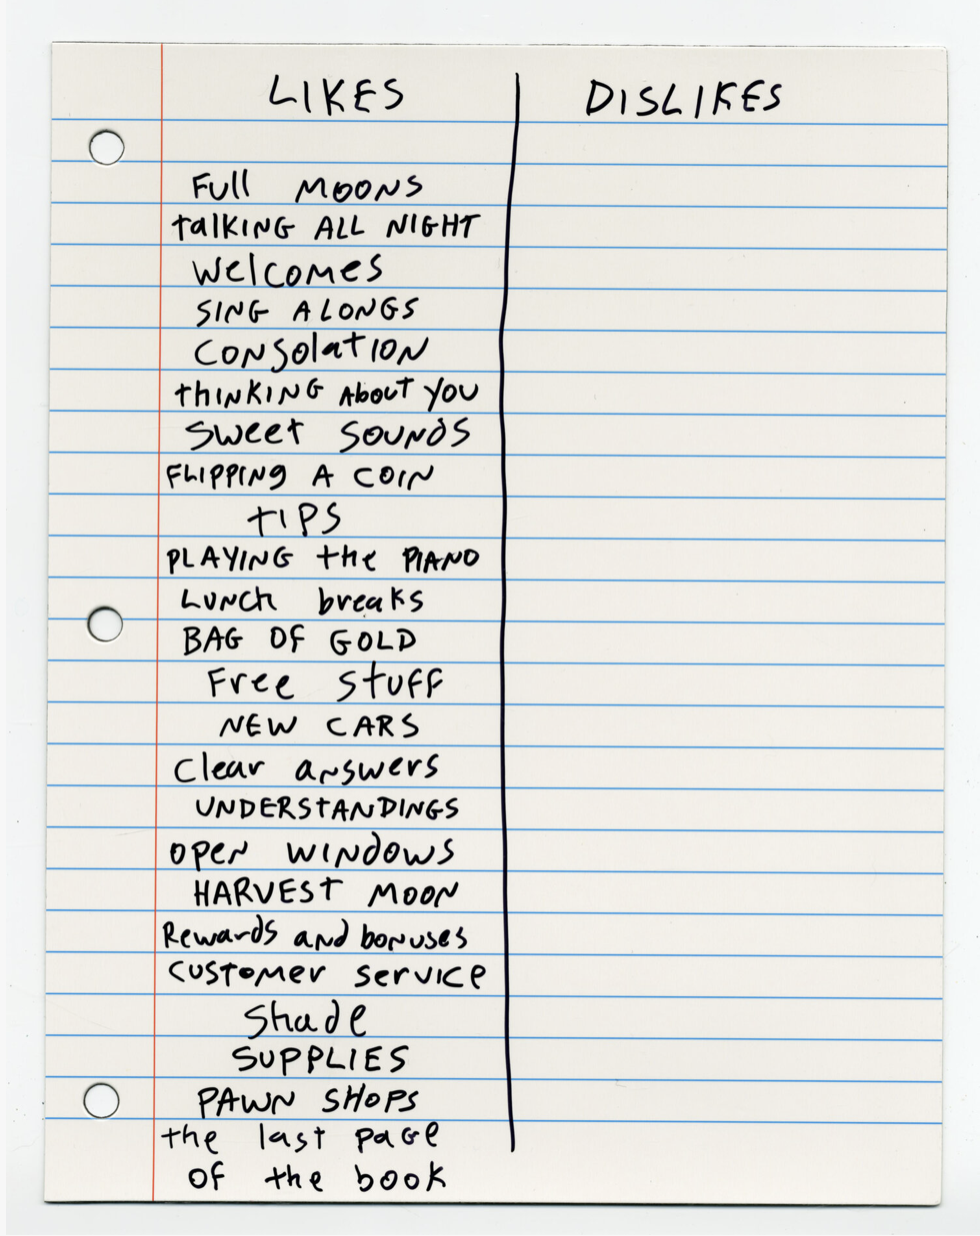 LIKES DISLIKES
Full MOONS
talKING ALL NIGHT
Welcomes
SING ALONGS
CONSolatION
thINKING About you
Sweet SOUNdS
FLIPPINg A COIN
tIPS
PLAYING the PIANO
LUNch breaks
BAG OF GOLD
Free stuff
NEW CARS
Clear answers
UNDERSTANDINGS
open WINdOWS
HARVEST MOON
Rewards and bonuses
CUSTOMer service
Shade
SUPPLIES
PAWN SHOPS
the last page
of the book